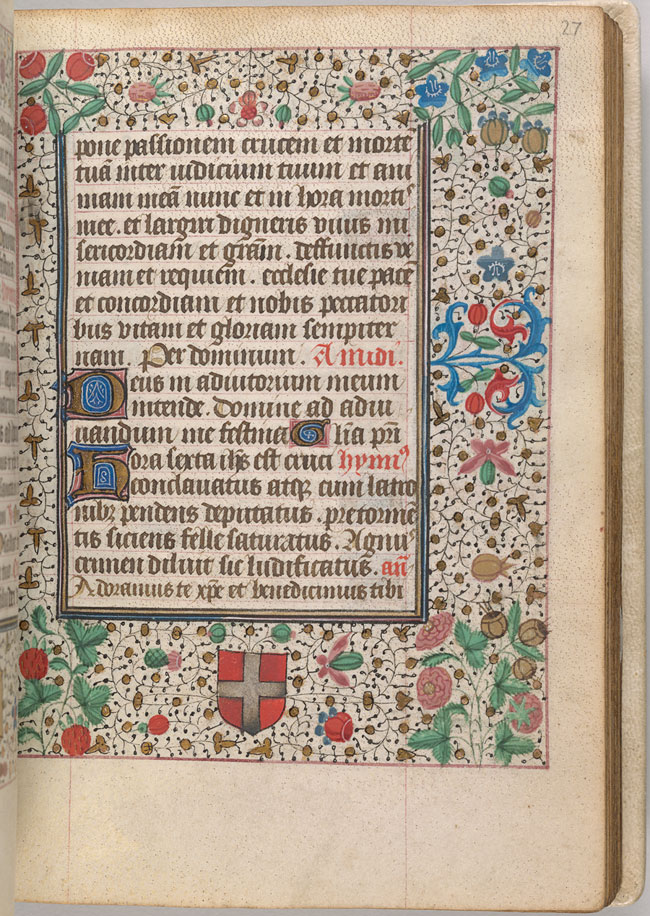 27
pone passionem crucem et morte
tuā inter iudicium tuum et ani
mam meā nunc et in hora morti⁹
mee. et largiri digneris viuis mi
sericordiam et grām. deffunctis ve
niam et requiem. ecclesie tue pacē
et concordiam et nobis peccatori
bus vitam et gloriam sempiter
nam. Per dominum. A midi.
Deus in adiutorium meum
intende. Domine ad adiu
uandum me festina Glīa prī
Hora sexta ihs est cruci hymn⁹
conclauatus atqꝫ cum latro
nibꝫ pendens deputatus. pre torme
tis siciens felle saturatus. Agnus
crimen diluit sic ludificatus. an̄
Adoramus te xp̄e et benedicimus tibi